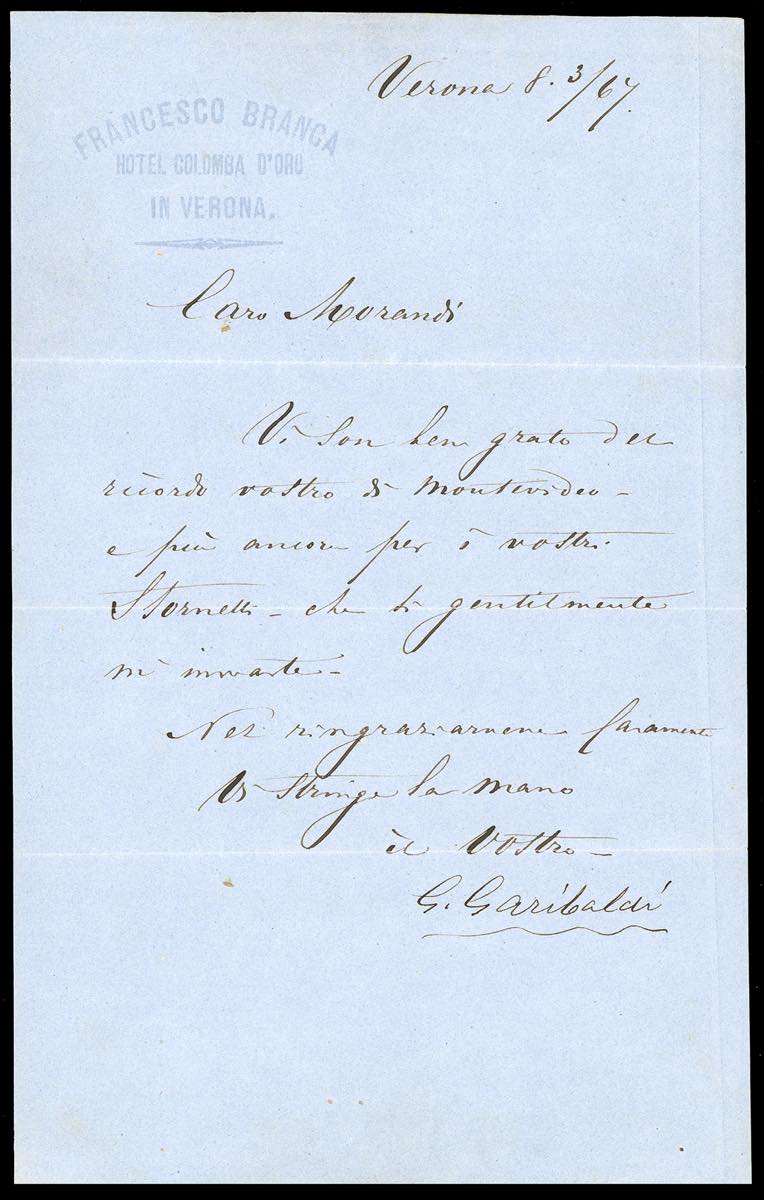 Verona 8. 3/67.
FRANCESCO BRANCA
HOTEL COLOMBA D'ORO
IN VERONA.
Caro Morandi
Vi son ben grato del
ricordo vostro di Montevideo –
e più ancora per i vostri
Stornelli – che sì gentilmente
m' inviaste –
Nel ringraziarvene caramente
Vi stringe la mano
il Vostro –
G. Garibaldi